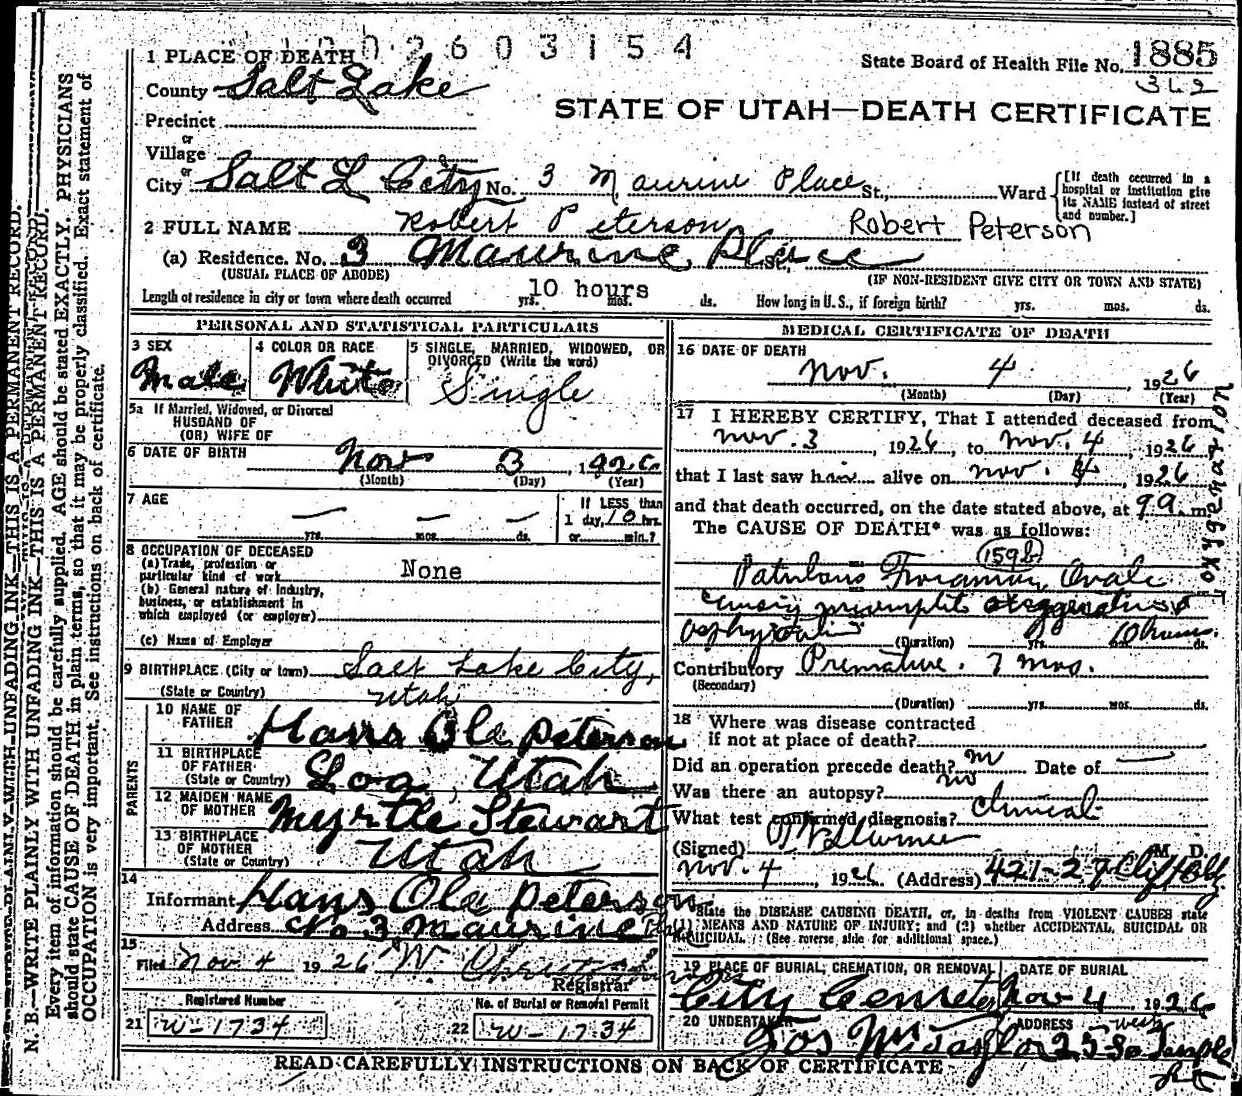 1002603154
State Board of Health File No. 1885
362
STATE OF UTAH—DEATH CERTIFICATE
1 PLACE OF DEATH
County Salt Lake
Precinct
or
Village
or
City Salt L City No. 3 Maurine Place St., Ward
[If death occurred in a
hospital or institution give
its NAME instead of street
and number.]
2 FULL NAME Robert Peterson Robert Peterson
(a) Residence. No. 3 Maurine Place St.
(USUAL PLACE OF ABODE) (IF NON-RESIDENT GIVE CITY OR TOWN AND STATE)
Length of residence in city or town where death occurred yrs. 10 hours mos. ds. How long in U. S., if foreign birth? yrs. mos. ds.
PERSONAL AND STATISTICAL PARTICULARS
3 SEX
Male
4 COLOR OR RACE
White
5 SINGLE, MARRIED, WIDOWED, OR
DIVORCED (Write the word)
Single
5a If Married, Widowed, or Divorced
HUSBAND OF
(OR) WIFE OF
6 DATE OF BIRTH Nov 3, 1926
(Month) (Day) (Year)
7 AGE — — —
yrs. mos. ds.
If LESS than
1 day, 10 hrs.
or min.?
8 OCCUPATION OF DECEASED
(a) Trade, profession or
particular kind of work None
(b) General nature of industry,
business, or establishment in
which employed (or employer)
(c) Name of Employer
9 BIRTHPLACE (City or town) Salt Lake City,
(State or Country) Utah
PARENTS
10 NAME OF
FATHER Hans Ola Peterson
11 BIRTHPLACE
OF FATHER
(State or Country) Loa, Utah
12 MAIDEN NAME
OF MOTHER Myrtle Stewart
13 BIRTHPLACE
OF MOTHER
(State or Country) Utah
14
Informant Hans Ola Peterson
Address No 3 Maurine Place
15
Filed Nov 4 1926 W.
Registrar
Registered Number
21 W-1734
No. of Burial or Removal Permit
22 W-1734
MEDICAL CERTIFICATE OF DEATH
16 DATE OF DEATH
Nov. 4, 1926
(Month) (Day) (Year)
17 I HEREBY CERTIFY, That I attended deceased from
Nov. 3, 1926, to Nov. 4, 1926
that I last saw him alive on Nov. 4, 1926
and that death occurred, on the date stated above, at 9 a. m.
The CAUSE OF DEATH* was as follows:
159b
Patulous Foramen Ovale
causing incomplete
oxygenation
asphyxiation (Duration) yrs. 10 hours ds.
Contributory Premature. 7 mos.
(Secondary)
(Duration) yrs. mos. ds.
18 Where was disease contracted
if not at place of death?
Did an operation precede death? no Date of —
Was there an autopsy? no
What test confirmed diagnosis? Clinical
(Signed) M. D.
Nov. 4, 1926 (Address) 421-27 Clift Bldg.
*State the DISEASE CAUSING DEATH, or, in deaths from VIOLENT CAUSES state
(1) MEANS AND NATURE OF INJURY; and (2) whether ACCIDENTAL, SUICIDAL OR
HOMICIDAL. (See reverse side for additional space.)
19 PLACE OF BURIAL, CREMATION, OR REMOVAL
City Cemetery
DATE OF BURIAL
Nov 4 1926
20 UNDERTAKER
Jos Wm Taylor
ADDRESS
25 So West Temple
READ CAREFULLY INSTRUCTIONS ON BACK OF CERTIFICATE
N. B.—WRITE PLAINLY WITH UNFADING INK—THIS IS A PERMANENT RECORD.
Every item of information should be carefully supplied. AGE should be stated EXACTLY. PHYSICIANS
should state CAUSE OF DEATH in plain terms, so that it may be properly classified. Exact statement of
OCCUPATION is very important. See instructions on back of certificate.